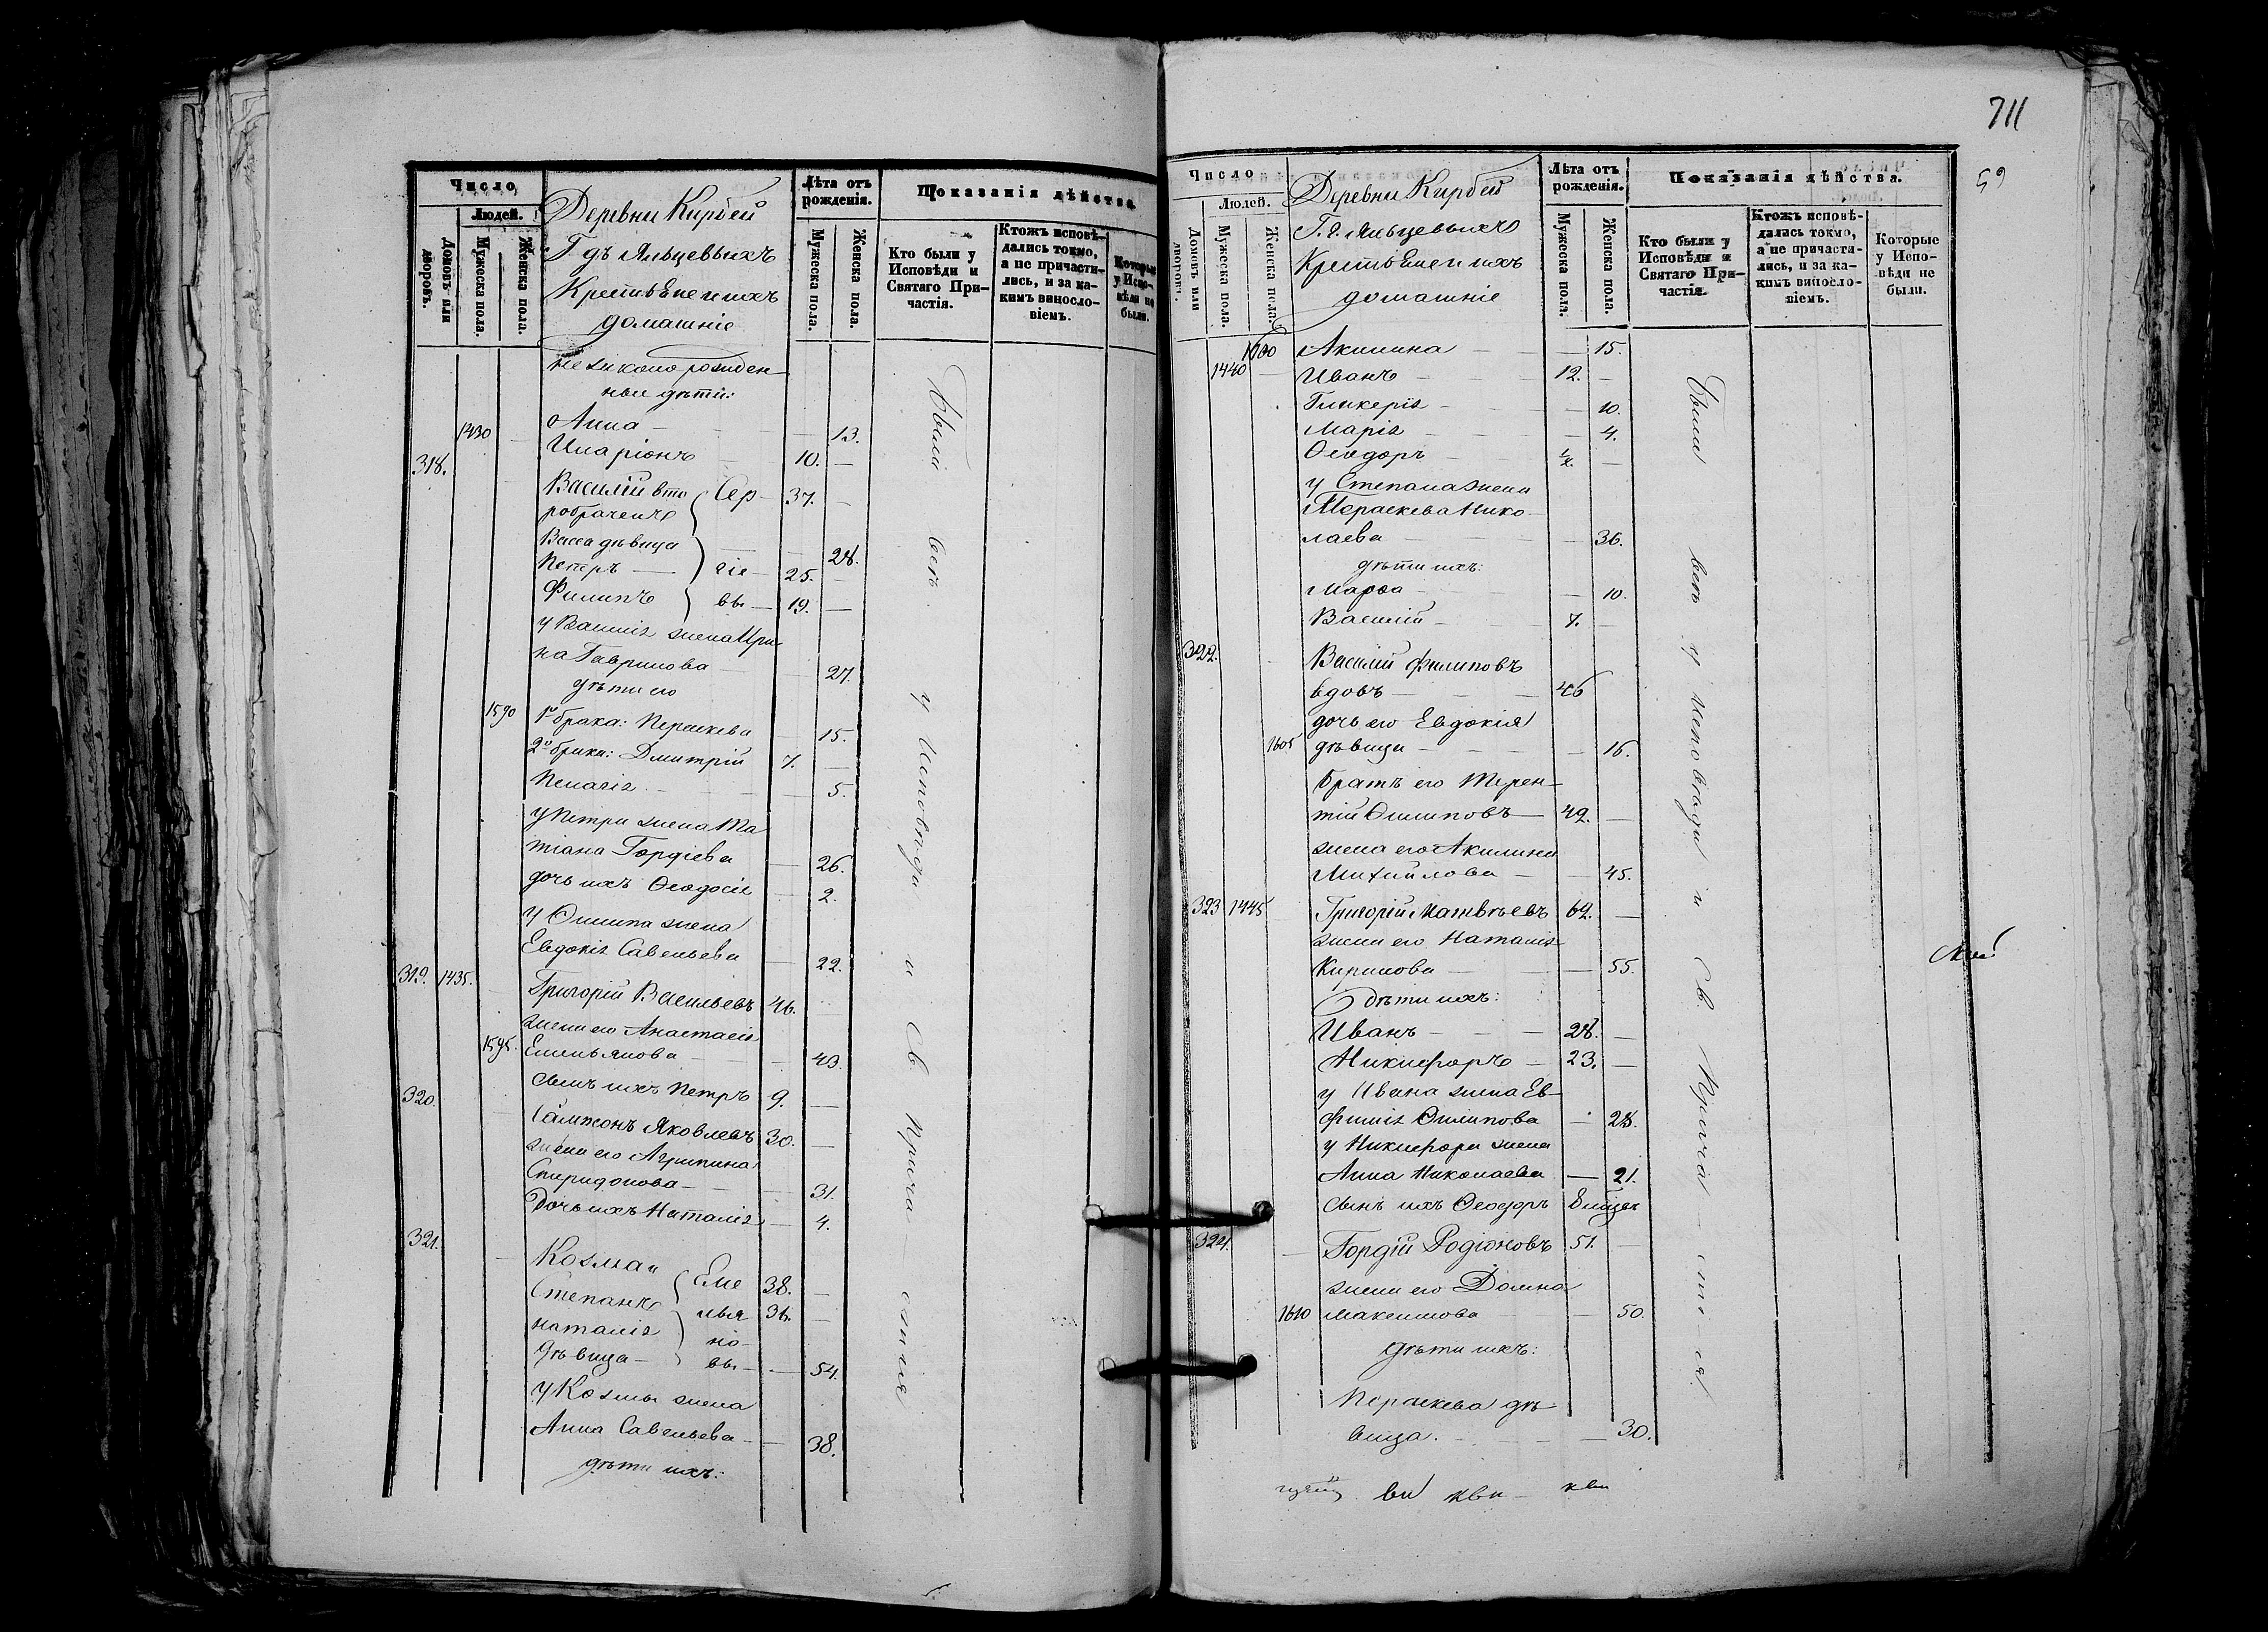 Число
Людей.
Домовъ или дворовъ.
Мужеска пола.
Женска пола.
Деревни Кирбей
Г дъ Яльцевыхъ
Крестьяне и ихъ
домашніе
Лѣта отъ рожденія.
Мужеска пола.
Женска пола.
Показанія дѣйства
Кто были у Исповѣди и Святаго Причастія.
Ктожъ исповѣдались токмо, а не причастились, и за какимъ винословіемъ.
Которые у Исповѣди не были.
незаконорожден
ные дѣти:
1430 Анна — 13.
Иларіонъ 10. —
318.
Василій вто { Сер — 37. —
робрачень
Васса дѣвица — 28.
Петръ — } гіе — 25. —
Филипъ } вы — 19. —
у Василія жена Ири
на Гаврилова — 27.
дѣти его
1590 1го брака: Параскева — 15.
2го брака: Дмитрій 7. —
Пелагія — 5.
у Петра жена Та
тіана Гордіева — 26.
дочь ихъ Ѳеодосія — 2.
у Филипа жена
Евдокія Савельева — 22.
319. 1435. Григорій Васильевъ 46.
жена его Анастасія
1595. Емельянова — 43.
сынъ ихъ Петръ 9. —
320.
Сампсонъ Яковлевъ 30. —
жена его Агрипина
Спиридонова — 31.
Дочь ихъ Наталія — 4.
321.
Козма и { Еме 38. —
Степанъ } лья 36. —
Наталія } но-
дѣвица — вы — 54.
у Козмы жена
Анна Савельева — 38.
дѣти ихъ:
Были всѣ у Исповѣди и Св Прича — стія
711
59
Число
Людей.
Домовъ или дворовъ.
Мужеска пола.
Женска пола.
Деревни Кирбей
Г. д. Яльцевыхъ
Крестьяне и ихъ
домашніе
Лѣта отъ рожденія.
Мужеска пола.
Женска пола.
Показанія дѣйства.
Кто были у Исповѣди и Святаго Причастія.
Ктожъ исповѣдались токмо, а не причастились, и за какимъ винословіемъ.
Которые у Исповѣди не были.
1600 Акилина — 15.
1440 Иванъ 12. —
Гликерія — 10.
Марія — 4.
Ѳеодоръ ½. —
у Степана жена
Параскева Нико
лаева — 36.
дѣти ихъ:
Марѳа — 10.
Василій 7. —
322.
Василій Филиповъ
вдовъ — 46
дочь его Евдокія
1605 дѣвица — 16.
братъ его Терен-
тій Филиповъ — 49. —
жена его Акилина
Михайлова — 45.
323 1445 Григорій Матвѣевъ 62. —
жена его Наталія
Кирилова — 55.
Дѣти ихъ:
Иванъ — 28. —
Никифоръ — 23. —
у Ивана жена Ев-
фимія Филипова — 28.
у Никифора жена
Анна Николаева — 21.
сынъ ихъ Ѳеодоръ
324. Гордій Родіоновъ 51. —
жена его Домна
1610 Максимова — 50.
дѣти ихъ:
Параскева дѣ
вица. — 30.
Были всѣ у исповѣди и Св. Прича — сті — я